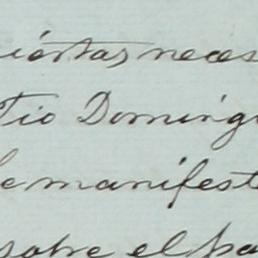 ciertas neces
Tio Doming
le manifest
sobre el pa